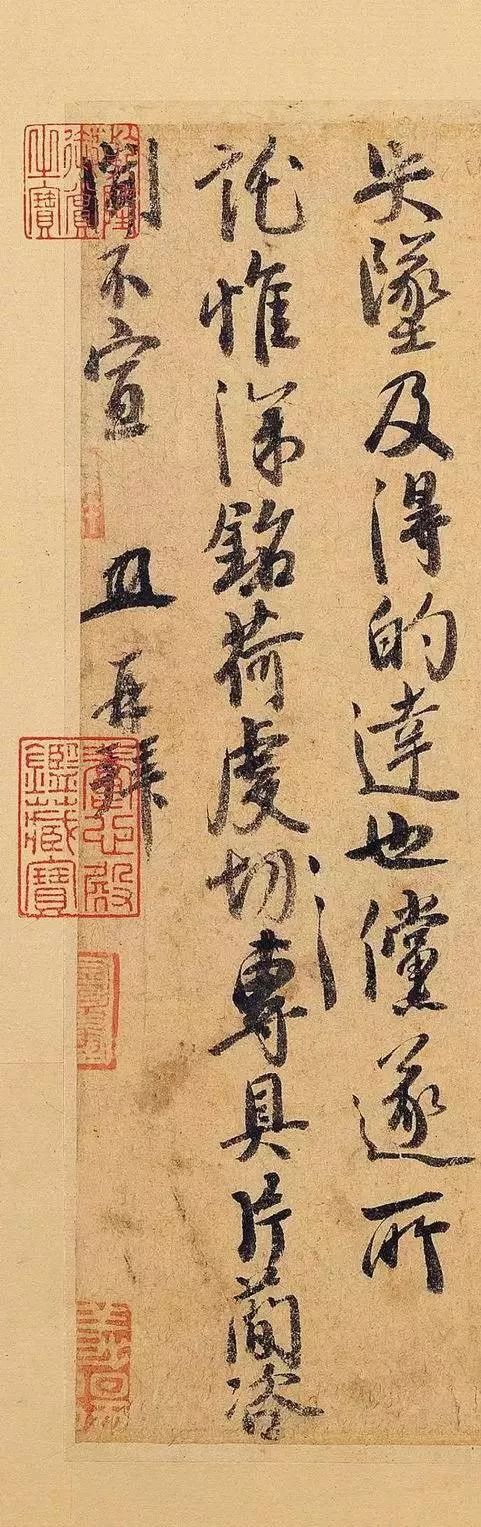 失墜及得的達也儻遂所
託惟深銘荷虔切專具片簡咨
聞不宣 再拜
乾隆御覽之寶
養心殿鑑藏寶